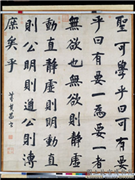 聖可學乎曰可有要
乎曰有要一爲要一者
無欲也無欲則靜虛
動直靜虛則明動直
則公明則通公則溥
庶矣乎